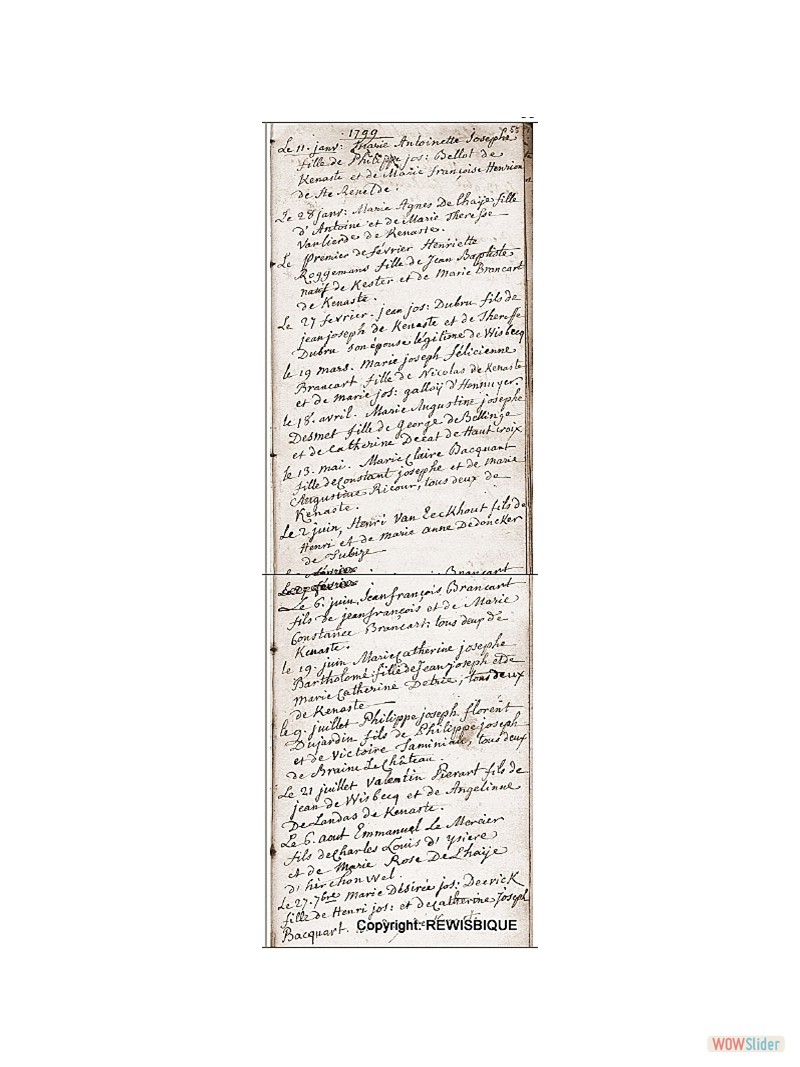 55
1799
Le 11. janv: Marie Antoinette Josephe
fille de Philippe jos: Bellot de
Kenaste et de Marie françoise Henrion
de Ste Renelde.
Le 28 janv: Marie Agnes De Lhaije fille
d'Antoine et de Marie Theresse
Vanlierde de Kenaste.
Le premier de février Henriette
Roggemans fille de Jean Baptiste
natif de Kester et de Marie Brancart
de Kenaste.
Le 27 fevrier. jean jos: Dubru fils de
jean joseph de Kenaste et de Theresse
Dubru son épouse légitime de Wisbecq
le 19 mars. Marie joseph félicienne
Brancart fille de Nicolas de Kenaste
et de marie jos: galloÿ d'Hennuyer.
le 18. avril. Marie Augustine josephe
Desmet fille de George de Bellinge
et de Catherine Decat de Hautcroix
le 13. mai. Marie Claire Bacquart
fille de Constant josephe et de marie
Augustine Ricour, tous deux de
Kenaste.
Le 2 juin, Henri Van Eeckhout fils de
Henri et de marie anne Dedoncker
de Tubize
Le 27 fevrier
Brancart
Le 6. juin, Jean françois Brancart
fils de jean françois et de Marie
Constance Brancart: tous deux de
Kenaste.
le 19. juin Marie Catherine josephe
Bartholomé fille de Jean joseph et de
Marie Catherine Detrie, tous deux
de Kenaste
le 9. juillet Philippe joseph florent
Dujardin fils de Philippe joseph
et de Victoire tous deux
de Braine Le Château.
Le 21 juillet Valentin Pierart fils de
jean de Wisbecq et de Angelinne
De Landas de Kenaste.
Le 6. aout Emmanuel Le Mercier
fils de Charles Louis d'Ysiere
et de Marie Rose De Lhaije
d'hérchonwel.
Le 27. 7bre Marie Désirée jos: Deerick
fille de Henri jos: et de Catherine Joseph
Bacquart.
Copyright: REWISBIQUE
WOWSlider